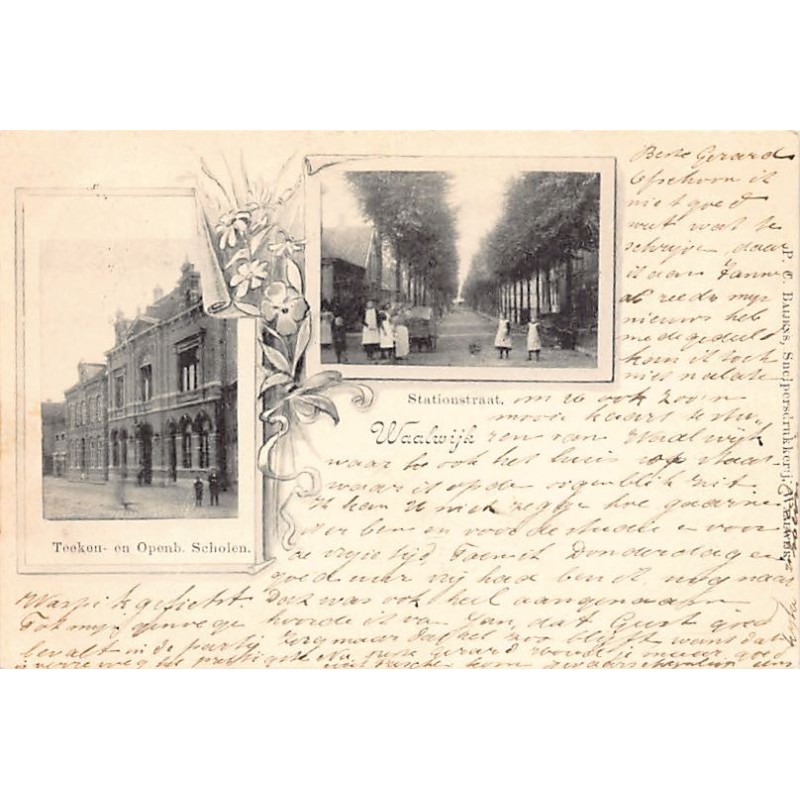 Teeken- en Openb. Scholen.
Stationstraat.
Waalwijk
P. C. Snelpersdrukkerij, Waalwijk
Beste Gerard
Ofschoon ik
niet goed
weet wat te
schrijve, daar
ik aan
al reeds mijn
nieuws heb
medegedeeld
kan ik toch
niet nalate
om u ook zoo'n
mooie kaart te stu
ren van Waalwijk
waar de ook het huis op staat
waar ik op de ogenblik zit
Ik kan u niet zegge hoe gaarne
ik er ben en voor de studie en voor
de vrije tijd. Toen ik Donderdag en
goed uur vrij had ben ik nog naar
Waspik gefietst. Dat was ook heel aangenaam
Tot mijn genoege hoorde ik van Jan, dat Gust goed
bevalt in de partij zorg maar dat het zoo blijft want dat
Nu, Gerard maar goed